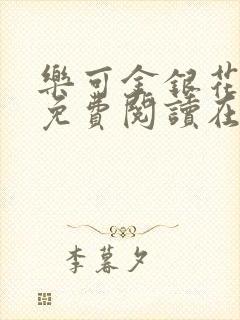 樂可金銀花
免費閱讀在
李暮夕